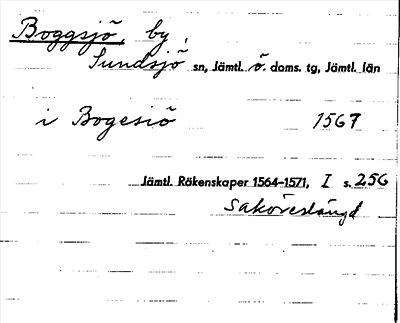 Boggsjö, by,
Sundsjö sn, Jämtl. ö. doms. tg, Jämtl. län
i Bogesiö 1567
Jämtl. Räkenskaper 1564–1571, I s. 256
saköreslängd